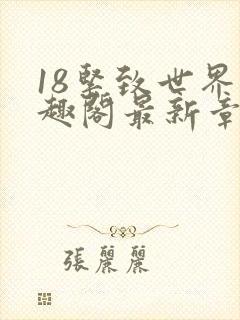 18紧致世界
趣阁最新章
張麗麗